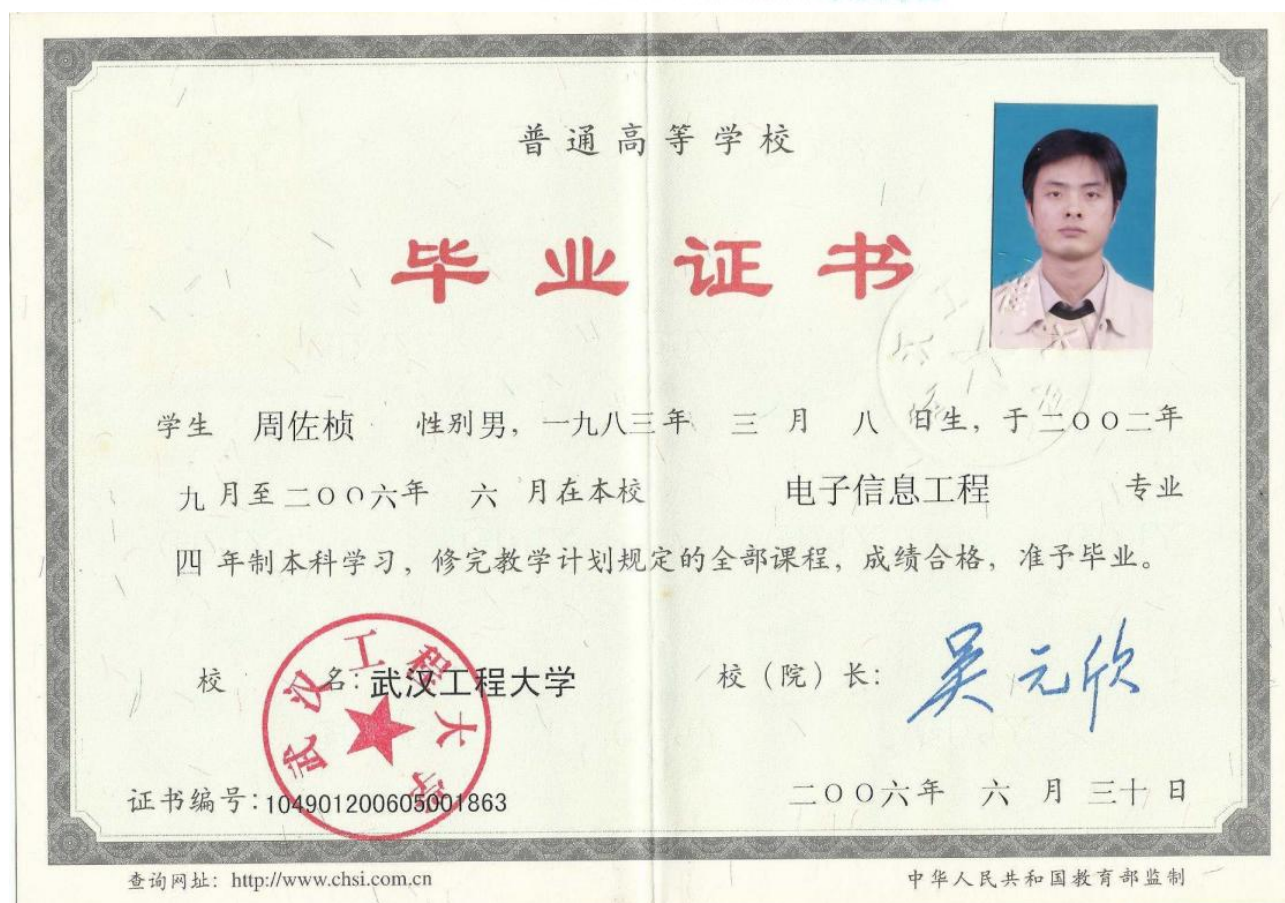 普通高等学校
毕业证书
学生 周佐桢 性别男，一九八三年 三 月 八 日生，于二〇〇二年
九 月至二〇〇六年 六 月在本校 电子信息工程 专业
四 年制本科学习，修完教学计划规定的全部课程，成绩合格，准予毕业。
校 名：武汉工程大学 校（院）长：吴元欣
武汉工程大学
证书编号：104901200605001863 二〇〇六年 六 月 三十 日
查询网址：http://www.chsi.com.cn 中华人民共和国教育部监制